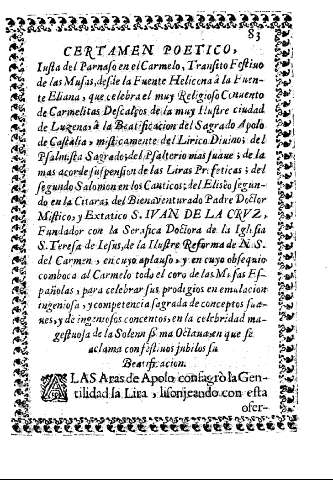 83
CERTAMEN POETICO,
Iusta del Parnaso en el Carmelo, Transito Festiuo
de las Musas, desde la Fuente Helicona à la Fuen-
te Eliana, que celebra el muy Religioso Conuento
de Carmelitas Descalços de la muy Ilustre ciudad
de Luzena, à la Beatificacion del Sagrado Apolo
de Castalia, misticamente del Lirico Diuino; del
Psalmista Sagrado, del Psalterio mas suaue; de la
mas acorde suspension de las Liras Profeticas; del
segundo Salomon en los Canticos; del Eliseo segun-
do en la Citara; del Bienauenturado Padre Doctor
Mistico, y Extatico S. IVAN DE LA CRVZ,
Fundador con la Serafica Doctora de la Iglesia
S. Teresa de Iesus, de la Ilustre Reforma de N. S.
del Carmen, en cuyo aplauso, y en cuyo obsequio
comboca al Carmelo todo el coro de las Musas Es-
pañolas, para celebrar sus prodigios en emulacion
ingeniosa, y competencia sagrada de conceptos sua-
ues, y de ingeniosos concentos, en la celebridad ma-
gestuosa de la Solenissima Octaua, en que se
aclama con festiuos jubilos su
Beatificacion.
A LAS Aras de Apolo consagrò la Gen-
tilidad la Lira, lisonjeando con esta
ofer-